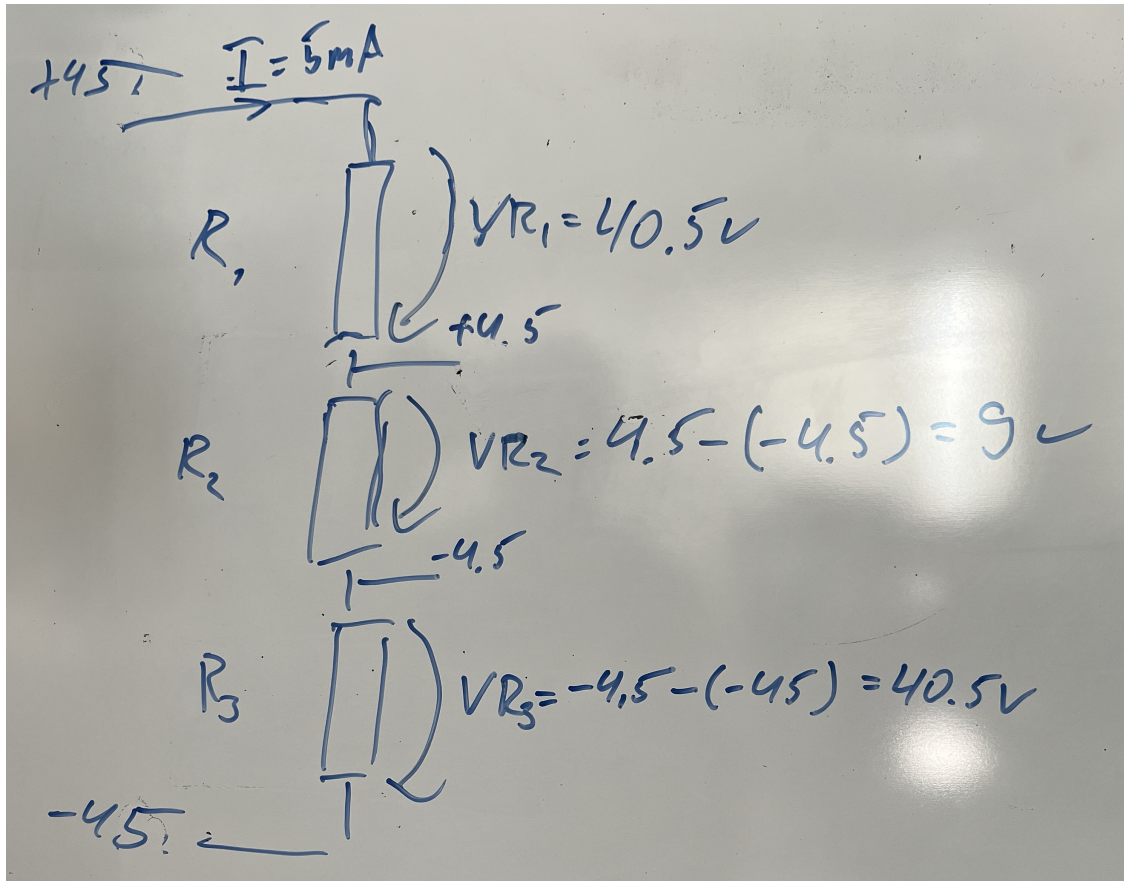 +45 I = 5mA
R₁ VR₁ = 40.5v
+4.5
R₂ VR₂ = 4.5-(-4.5) = 9v
-4.5
R₃ VR₃ = -4,5-(-45) = 40.5v
-45